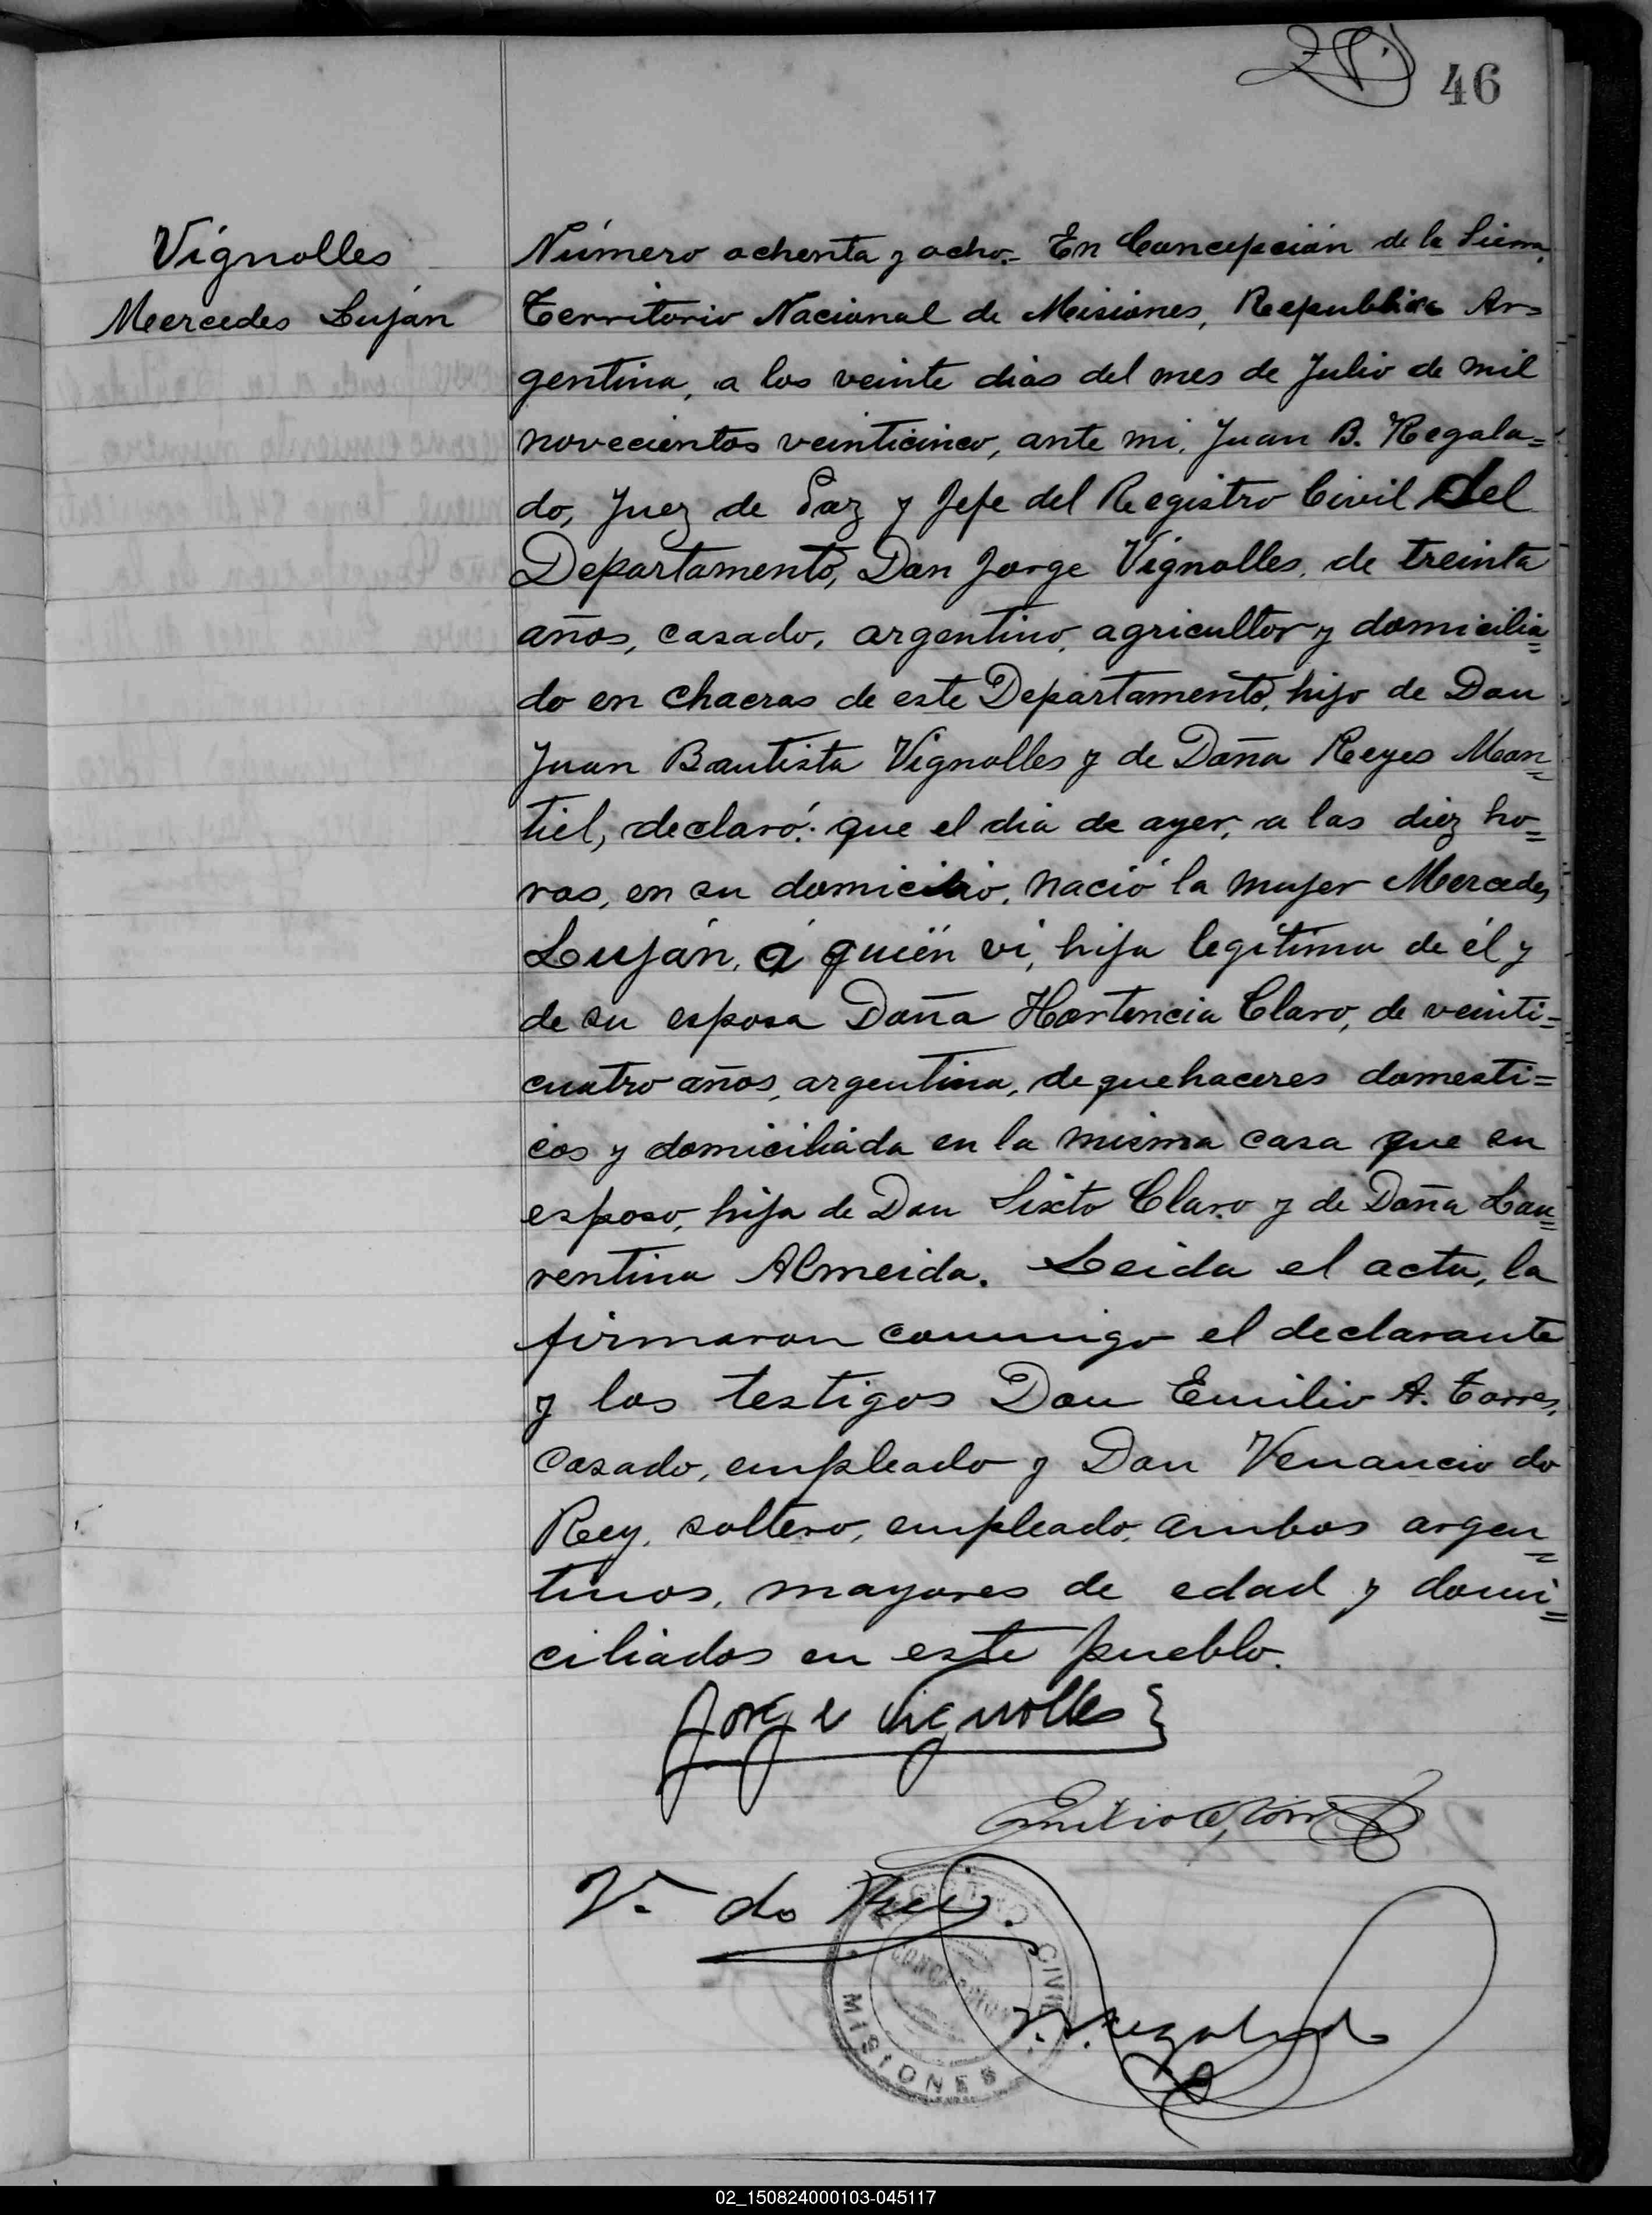 46
Vignolles
Mercedes Luján
Número ochenta y ocho.- En Concepción de la Sierra,
Territorio Nacional de Misiones, República Ar=
gentina, a los veinte dias del mes de Julio de mil
novecientos veinticinco, ante mi, Juan B. Regala=
do, Juez de Paz y Jefe del Registro Civil del
Departamento, Don Jorge Vignolles, de treinta
años, casado, argentino, agricultor y domicilia=
do en chacras de este Departamento, hijo de Don
Juan Bautista Vignolles y de Doña Reyes Mon=
tiel, declaró: que el dia de ayer, a las diez ho=
ras, en su domicilio, nació la mujer Mercedes
Luján, á quién vi, hija legítima de él y
de su esposa Doña Hortencia Claro, de veinti=
cuatro años, argentina, de quehaceres domesti=
cos y domiciliada en la misma casa que su
esposo, hija de Don Sixto Claro y de Doña Lau=
rentina Almeida. Leida el acta, la
firmaron conmigo el declarante
y los testigos Don Emilio A. Torres,
casado, empleado y Don Venancio do
Rey, soltero, empleado, ambos argen=
tinos, mayores de edad y domi=
ciliados en este pueblo.
Jorge Vignolles
Emilio A. Torres
V. do Rey.
REGISTRO CIVIL
CONCEPCION
MISIONES
J. B. Regalado
02_150824000103-045117